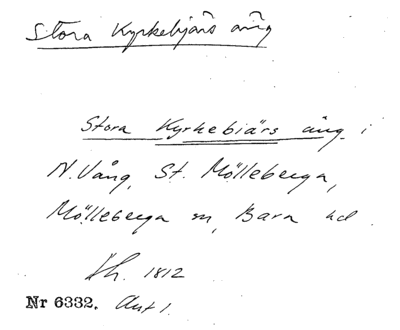 Stora Kyrkebjärs äng
Stora Kyrkebiärs äng i
N. Vång, St. Mölleberga,
Mölleberga sn, Bara hd.
Sh. 1812
Nr 6332. Akt 1.